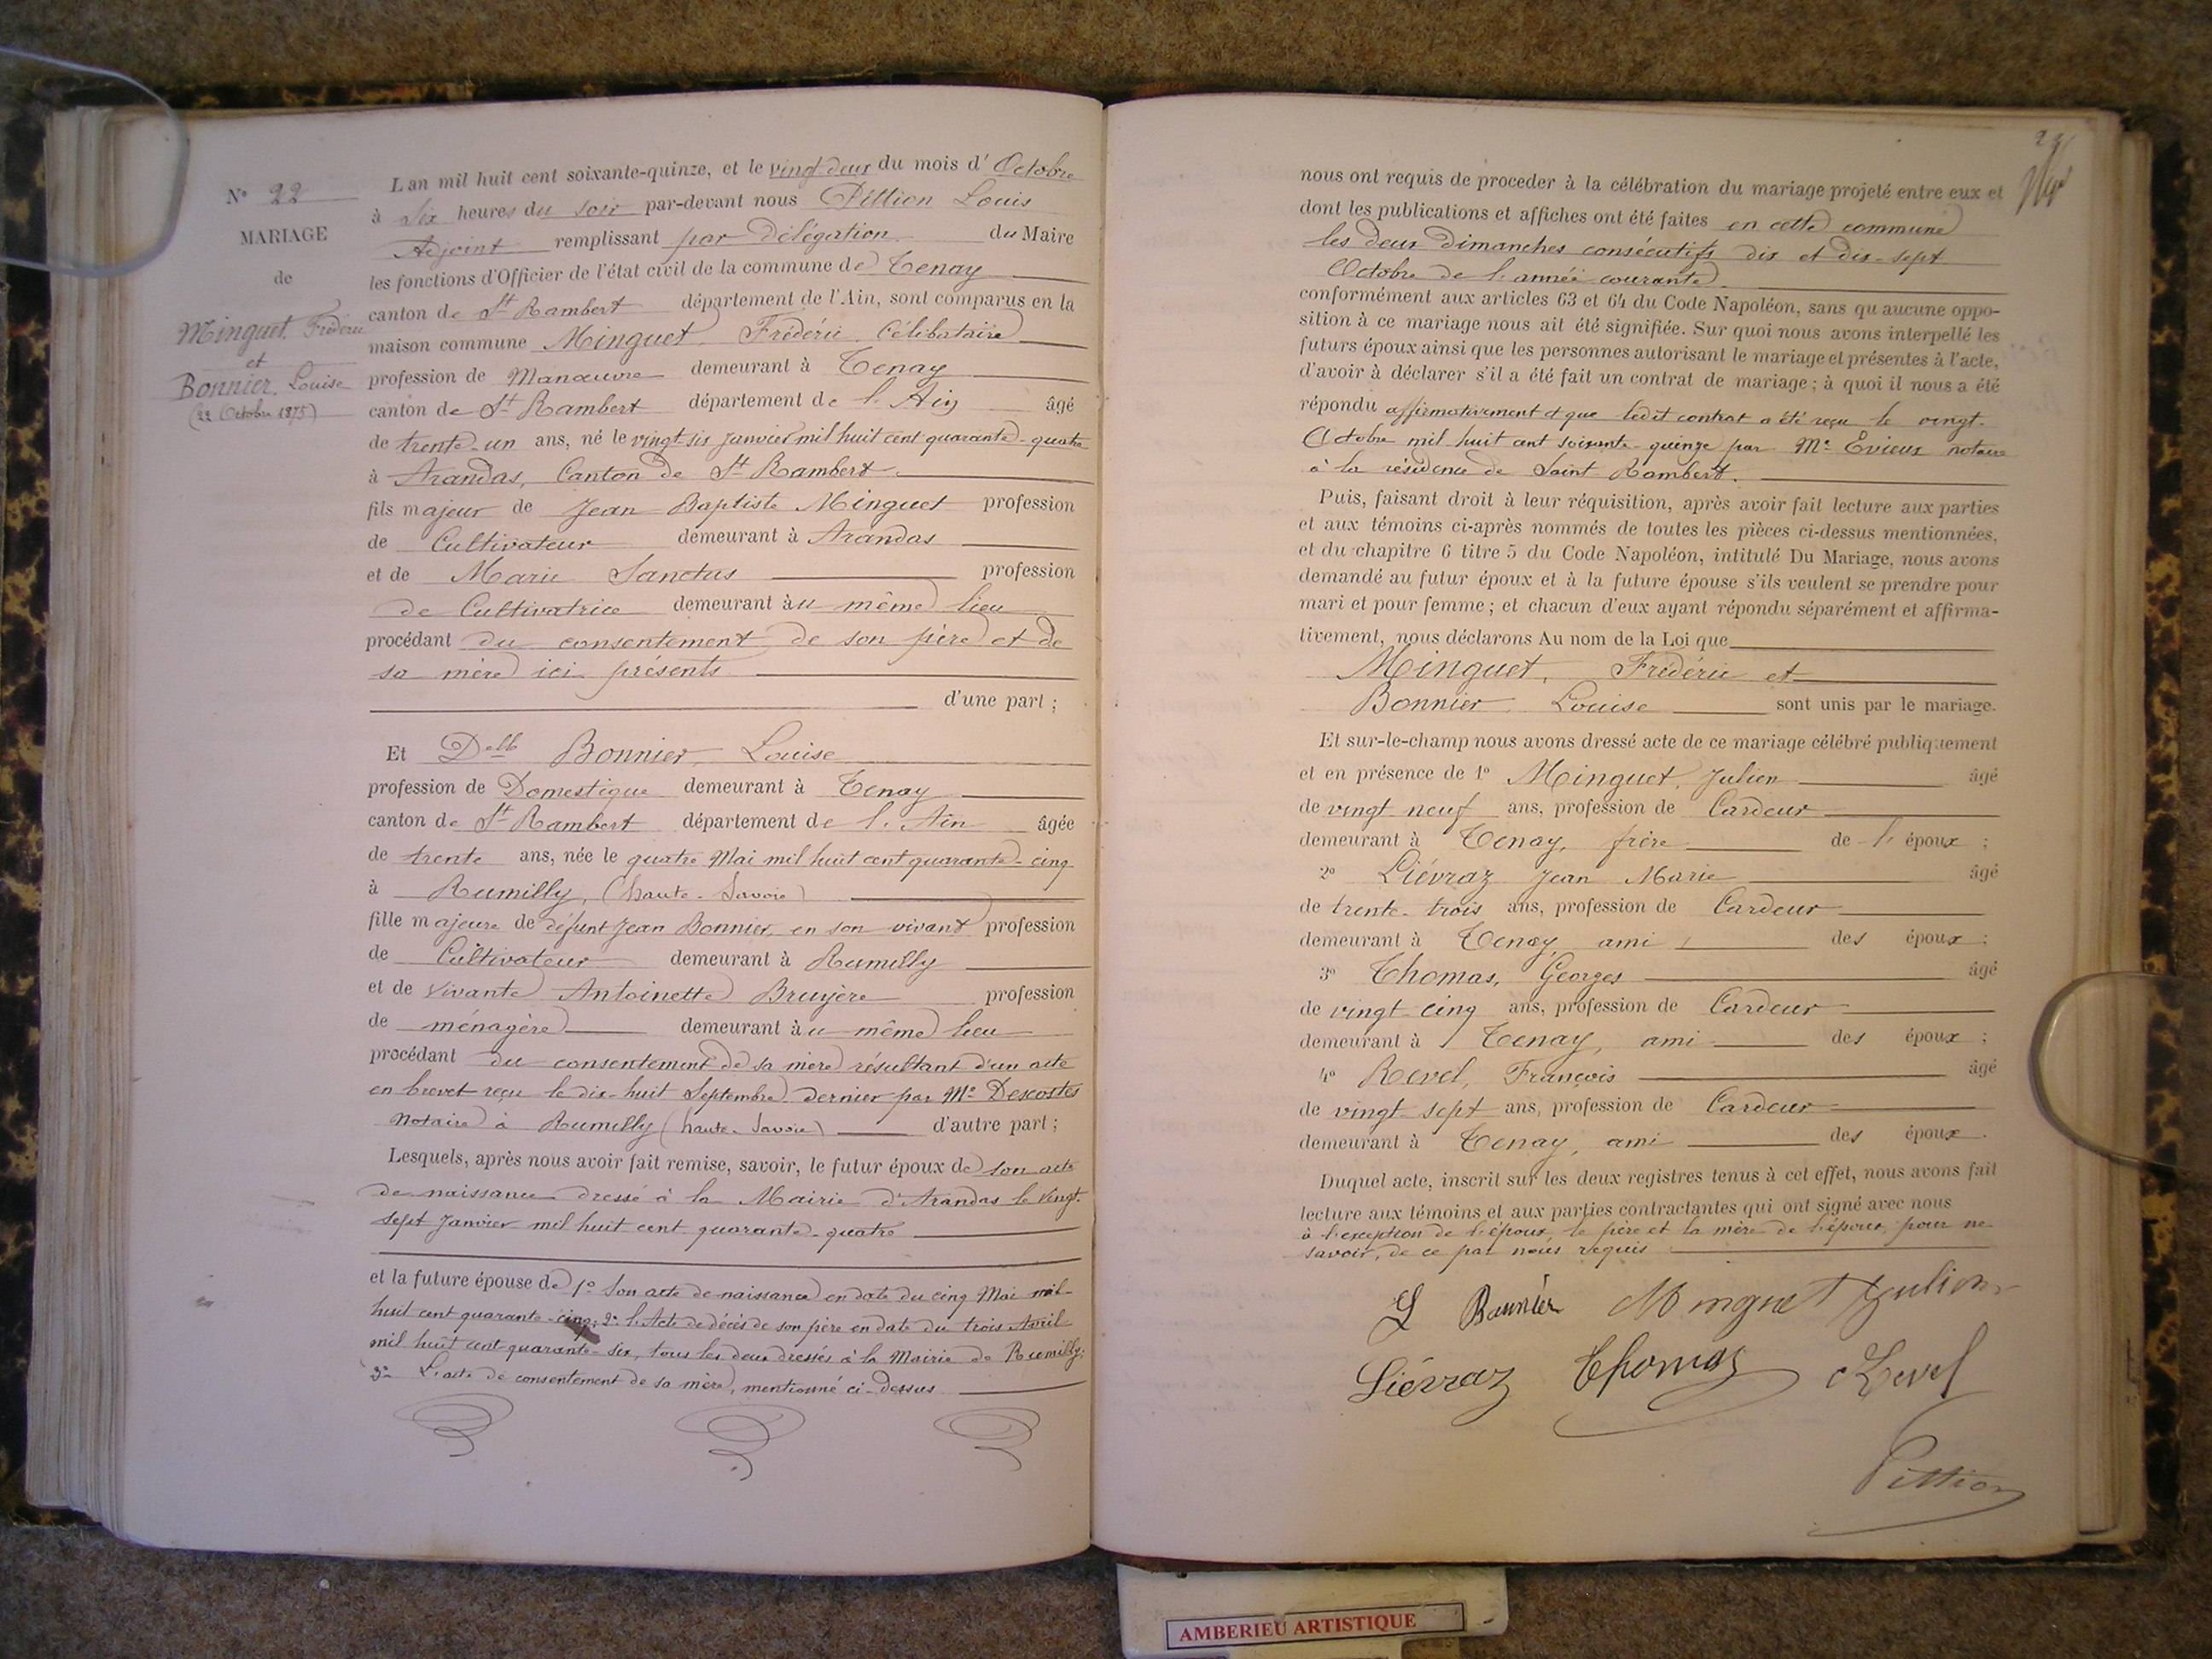 N° 22
MARIAGE
de
Minguet, Frédéric
et
Bonnier, Louise
(22 Octobre 1875)
L'an mil huit cent soixante-quinze, et le vingt-deux du mois d'Octobre
à six heures du soir par-devant nous Pittion Louis
Adjoint remplissant par délégation du Maire
les fonctions d'Officier de l'état civil de la commune de Tenay
canton de St Rambert département de l'Ain, sont comparus en la
maison commune Minguet, Frédéric, Célibataire
profession de Manœuvre demeurant à Tenay
canton de St Rambert département de l'Ain âgé
de trente-un ans, né le vingt-six Janvier mil huit cent quarante-quatre
à Arandas, Canton de St Rambert
fils majeur de Jean Baptiste Minguet profession
de Cultivateur demeurant à Arandas
et de Marie Sanctus profession
de Cultivatrice demeurant au même lieu
procédant du consentement de son père et de
sa mère ici présents
d'une part ;
Et Delle Bonnier, Louise
profession de Domestique demeurant à Tenay
canton de St Rambert département de l'Ain âgée
de trente ans, née le quatre Mai mil huit cent quarante-cinq
à Rumilly, (haute-Savoie)
fille majeure de défunt Jean Bonnier, en son vivant profession
de Cultivateur demeurant à Rumilly
et de vivante Antoinette Bruyère profession
de ménagère demeurant au même lieu
procédant du consentement de sa mère résultant d'un acte
en brevet reçu le dix-huit Septembre dernier par Me Descostes
Notaire à Rumilly (haute-Savoie) d'autre part ;
Lesquels, après nous avoir fait remise, savoir, le futur époux de son acte
de naissance dressé à la Mairie d'Arandas le vingt-
sept Janvier mil huit cent quarante-quatre
et la future épouse de 1° Son acte de naissance en date du cinq Mai mil-
huit cent quarante-cinq; 2° l'Acte de décès de son père en date du trois Avril
mil huit cent quarante-six, tous les deux dressés à la Mairie de Rumilly;
3° L'acte de consentement de sa mère, mentionné ci-dessus
nous ont requis de proceder à la célébration du mariage projeté entre eux et
dont les publications et affiches ont été faites en cette commune
les deux Dimanches consécutifs dix et dix-sept
Octobre de l'année courante
conformément aux articles 63 et 64 du Code Napoléon, sans qu'aucune oppo-
sition à ce mariage nous ait été signifiée. Sur quoi nous avons interpellé les
futurs époux ainsi que les personnes autorisant le mariage et présentes à l'acte,
d'avoir à déclarer s'il a été fait un contrat de mariage ; à quoi il nous a été
répondu affirmativement et que ledit contrat a été reçu le vingt-
Octobre mil huit cent soixante-quinze par Me Evieux notaire
à la résidence de Saint Rambert.
Puis, faisant droit à leur réquisition, après avoir fait lecture aux parties
et aux témoins ci-après nommés de toutes les pièces ci-dessus mentionnées,
et du chapitre 6 titre 5 du Code Napoléon, intitulé Du Mariage, nous avons
demandé au futur époux et à la future épouse s'ils veulent se prendre pour
mari et pour femme ; et chacun d'eux ayant répondu séparément et affirma-
tivement, nous déclarons Au nom de la Loi que
Minguet, Frédéric et
Bonnier Louise sont unis par le mariage.
Et sur-le-champ nous avons dressé acte de ce mariage célébré publiquement
et en présence de 1° Minguet, Julien âgé
de vingt neuf ans, profession de Cardeur
demeurant à Tenay, frère de l'époux ;
2° Liévraz Jean Marie âgé
de trente-trois ans, profession de Cardeur
demeurant à Tenay, ami des époux ;
3° Thomas, Georges âgé
de vingt cinq ans, profession de Cardeur
demeurant à Tenay, ami des époux ;
4° Revel, François âgé
de vingt-sept ans, profession de Cardeur
demeurant à Tenay, ami des époux.
Duquel acte, inscrit sur les deux registres tenus à cet effet, nous avons fait
lecture aux témoins et aux parties contractantes qui ont signé avec nous
à l'exception de l'époux, le père et la mère de l'époux, pour ne
savoir, de ce par nous requis
L Bonnier Minguet Julien
Liévraz Thomas Revel
Pittion
AMBERIEU ARTISTIQUE